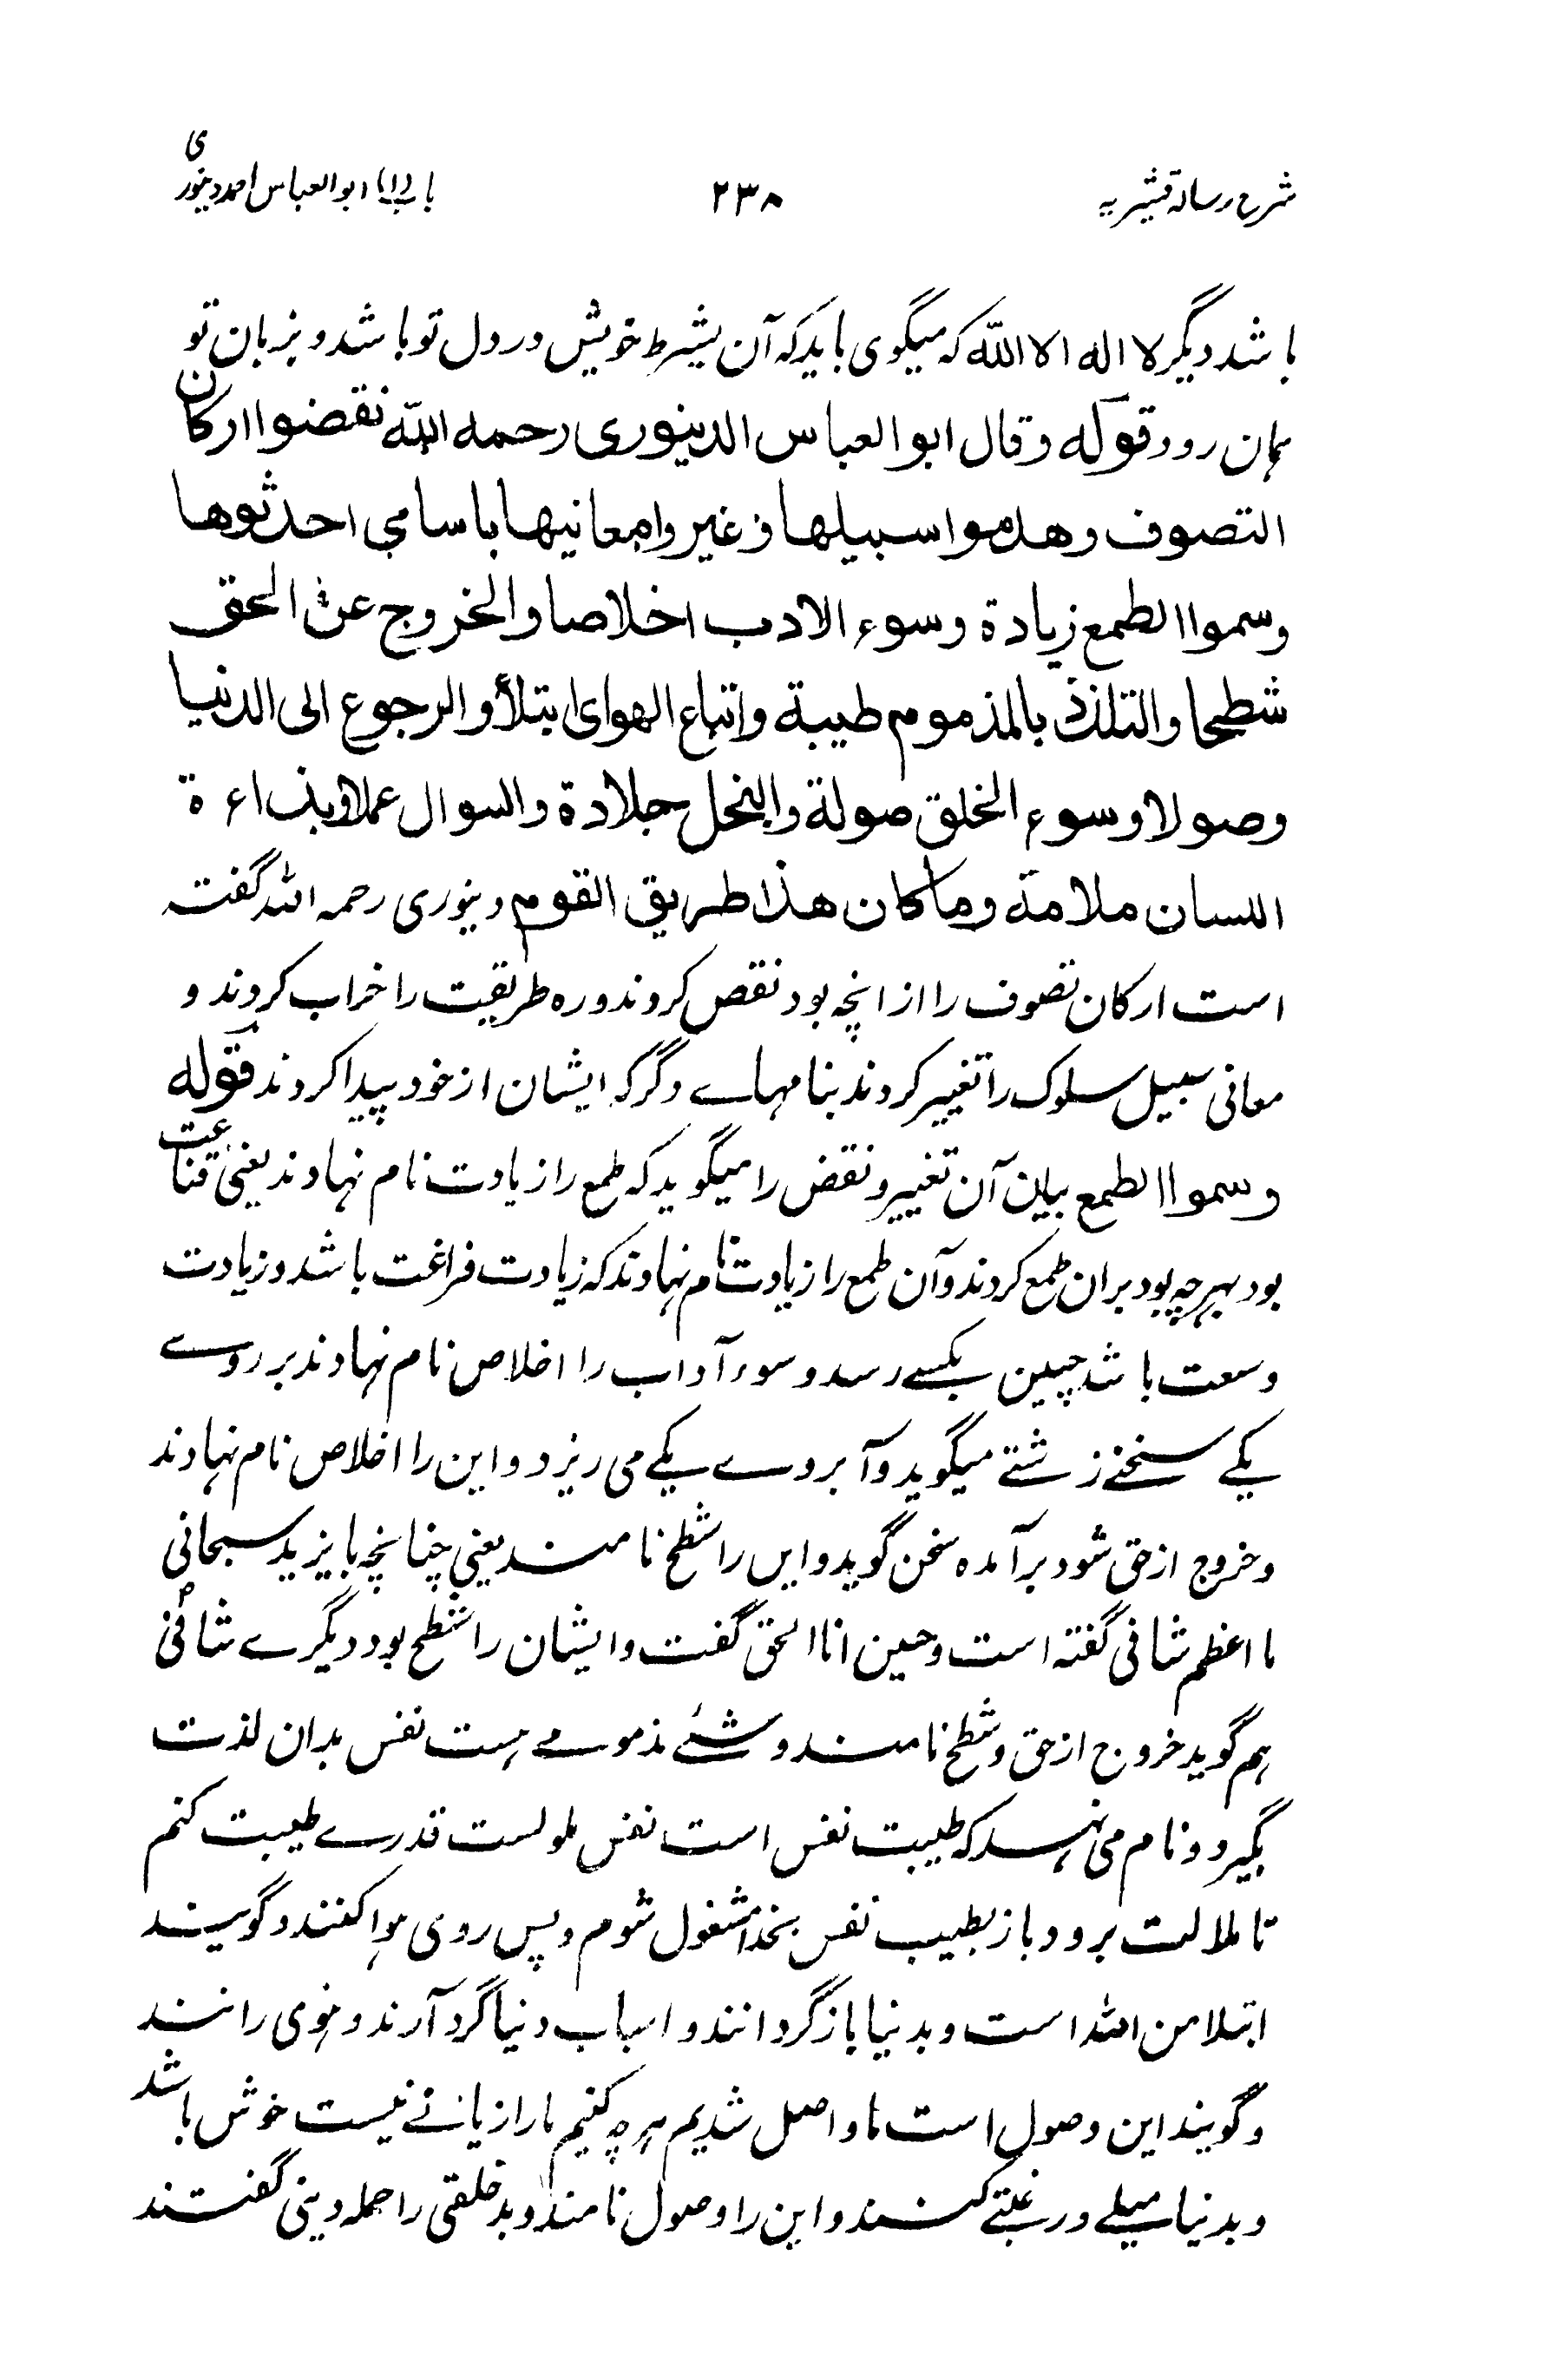 شرح رسالہ قشیریہ ۲۳۸ باب (۱) ابوالعباس احمد دینوری
باشد دیگر لا اله الا اللّٰه که میگوی باید که آن بشرط خویش در دل تو باشد و بزبان تو
همان رود قوله وقال ابو العباس الدینوری رحمه اللّٰه نقضوا ارکان
التصوف وهدموا سبیلها وغیروا معانیها باسامی احدثوها
وسموا الطمع زیادة وسوء الادب اخلاصا والخروج عن الحق
شطحا والتلذذ بالمذموم طیبة واتباع الهوای ابتلاً والرجوع الی الدنیا
وصولا وسوء الخلق صولة والبخل جلادة والسوال عملا وبذاءة
اللسان ملامة وما کان هذا طریق القوم دینوری رحمه الله گفته
است ارکان تصوف را از انچه بود نقص کردند و ره طریقت را خراب کردند و
معانی سبیل سلوک را تغییر کردند بنامهاے دگر که ایشان از خود پیدا کردند قوله
وسموا الطمع بیان آن تغییر و نقض را میگوید که طمع را زیادت نام نهادند یعنی قناعت
بود بهر چه بود بران طمع کردند و آن طمع را زیادت نام نهادند که زیادت فراغت باشد و زیادت
وسعت باشد چیین بکسے رسد و سوء آداب را اخلاص نام نهادند بر روے
یکے سخنے زشتے میگوید و آبروے یکے می ریزد و این را اخلاص نام نهادند
و خروج از حق شود برآمده سخن گوید و ایں را شطح نامند یعنی چنانچه بایزید سبحانی
ما اعظم شانی گفته است و حسین انا الحق گفت و ایشان را شطح بود دیگرے شانی
هم گوید خروج از حق و شطح نامند و شئے مذمومے هست نفس بدان لذت
بگیرد و نام می نهد که طیبت نفس است نفس ملولست قدرے طیبت کنم
تا ملالت برود باز بطیب نفس بخدا مشغول شوم و پس روی هوا کنند و گویند
ابتلا من الله است و بدنیا باز گردانند و اسباب دنیا گرد آرند و هوی رانند
و گویند این وصول است ما واصل شدیم هر چه کنیم ما را زیانے نیست خوش باشد
و بدنیا میلے و رغبتے کنند و این را وصول نامند و بد خلقی را حمله دینی گفتند